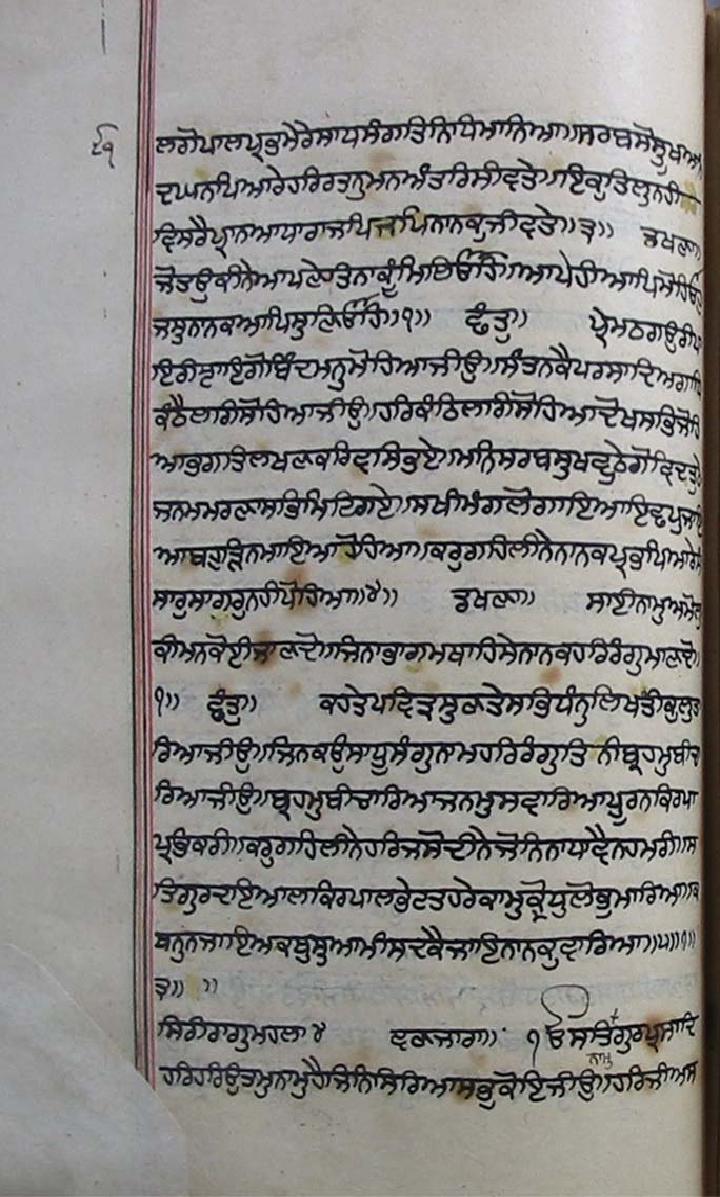 ਲਗੋਪਾਲਪ੍ਰਭਮੇਰੇਸਾਧਸੰਗਤਿਨਿਧਿਮਾਨਿਆ॥ਸਰਬਸੋਸੂਖਆਨੰ
ਦਘਨਪਿਆਰੇਹਰਿਰਤਨੁਮਨਅੰਤਰਿਸੀਵਤੇ॥ਇਕੁਤਿਲੁਨਹੀ
ਵਿਸਰੈਪ੍ਰਾਨਆਧਾਰਾਜਪਿਜਪਿਨਾਨਕੁਜੀਵਤੇ॥੩॥ ਡਖਣਾ॥
ਜੋਤਉਕੀਨੇਆਪਣੇਤਿਨਾਕੂੰਮਿਲਿਓਹਿ॥ਆਪੇਹੀਆਪਿਮੋਹਿਓਹੁ
ਜਸੁਨਨਕਆਪਿਸੁਣਿਓਹਿ॥੧॥ ਛੰਤੁ॥ ਪ੍ਰੇਮਠਗਉਰੀਪਾ
ਇਰੀਝਾਇਗੋਬਿੰਦਮਨੁਮੋਹਿਆਜੀਉ॥ਸੰਤਨਕੈਪਰਸਾਦਿਅਗਾਧਿ
ਕੰਠੈਲਗਿਸੋਹਿਆਜੀਉ॥ਹਰਿਕੰਠਿਲਗਿਸੋਹਿਆਦੋਖਸਭਿਜੋਹਿ
ਆਭਗਤਿਲਖਣਕਰਿਵਸਿਭਏ॥ਮਨਿਸਰਬਸੁਖਵੁਠੇਗੋਵਿਦਤੁਠੇ
ਜਨਮਮਰਣਾਸਭਿਮਿਟਿਗਏ॥ਸਖੀਮੰਗਲੋਗਾਇਆਇਛਪੁਜਾਇ
ਆਬਹੁੜਿਨਮਾਇਆਹੋਹਿਆ॥ਕਰੁਗਹਿਲੀਨੇਨਾਨਕਪ੍ਰਭਪਿਆਰੇਸੰ
ਸਾਰੁਸਾਗਰੁਨਹੀਪੋਹਿਆ॥੪॥ ਡਖਣਾ॥ ਸਾਈਨਾਮੁਅਮੋਲੁ
ਕੀਮਨਕੋਈਜਾਣਦੋ॥ਜਿਨਾਭਾਗਮਥਾਹਿਸੇਨਾਨਕਹਰਿਰੰਗੁਮਾਣਦੋ॥
੧॥ ਛੰਤੁ॥ ਕਹਤੇਪਵਿਤ੍ਰਸੁਣਤੇਸਭਿਧੰਨੁਲਿਖਤੀਕੁਲੁਤਾ
ਰਿਆਜੀਉ॥ਜਿਨਕਉਸਾਧੂਸੰਗੁਨਾਮਹਰਿਰੰਗੁਤਿਨੀਬ੍ਰਹਮੁਬੀਚਾ
ਰਿਆਜੀਉ॥ਬ੍ਰਹਮੁਬੀਚਾਰਿਆਜਨਮੁਸਵਾਰਿਆਪੂਰਨਕਿਰਪਾ
ਪ੍ਰਭਿਕਰੀ॥ਕਰੁਗਹਿਲੀਨੇਹਰਿਜਸੋਦੀਨੇਜੋਨਿਨਾਧਾਵੈਨਹਮਰੀ॥ਸ
ਤਿਗੁਰਦਇਆਲਕਿਰਪਾਲਭੇਟਤਹਰੇਕਾਮੁਕ੍ਰੋਧੁਲੋਭੁਮਾਰਿਆ॥ਕ
ਥਨੁਨਜਾਇਅਕਥੁਸੁਆਮੀਸਦਕੈਜਾਇਨਾਨਕੁਵਾਰਿਆ॥੫॥੧॥
੩॥ ॥
ਸਿਰੀਰਾਗੁਮਹਲਾ੪ ਵਣਜਾਰਾ॥ ੧ਓਸਤਿਗੁਰਪ੍ਰਸਾਦਿ
ਨਾਮੁ
ਹਰਿਹਰਿਉਤਮੁਨਾਮੁਹੈਜਿਨਿਸਿਰਿਆਸਭੁਕੋਇਜੀਉ॥ਹਰਿਜੀਅਸ